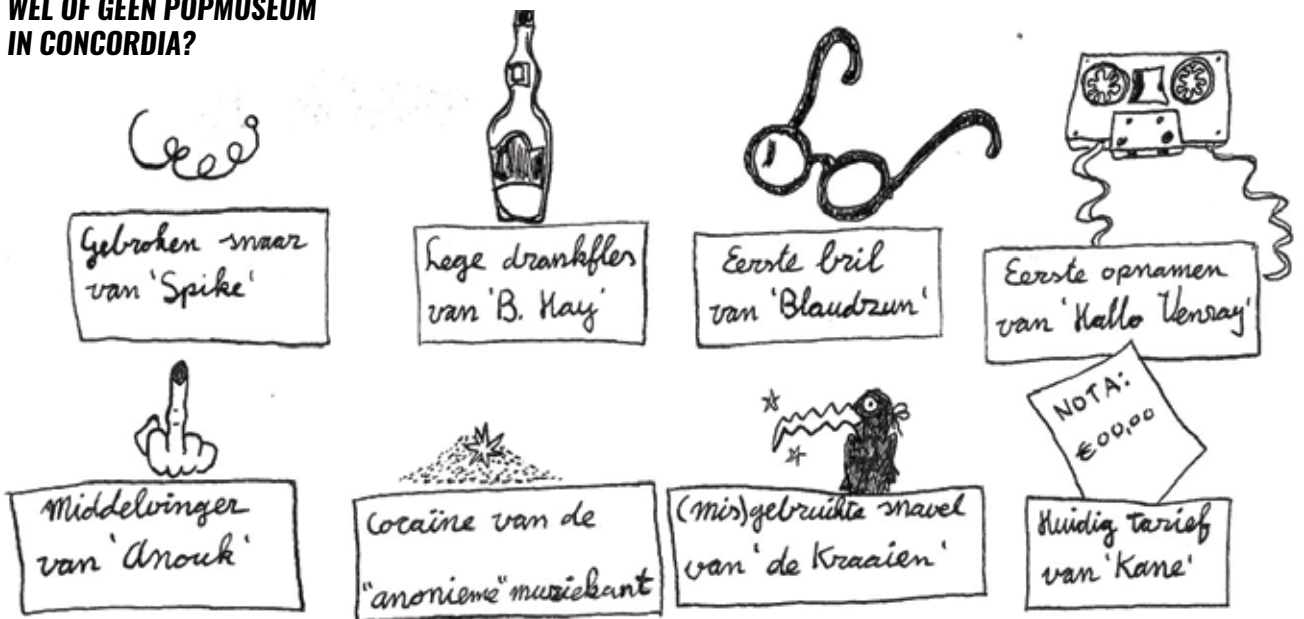 WEL OF GEEN POPMUSEUM
IN CONCORDIA?
Gebroken snaar
van 'Spike'
Lege drankfles
van 'B. Hay'
Eerste bril
van 'Blaudzun'
Eerste opnamen
van 'Hallo Venray'
Middelvinger
van 'Anouk'
Cocaïne van de
"anonieme" muziekant
(mis)gebruikte snavel
van 'de Kraaien'
NOTA:
€00,00
Huidig tarief
van 'Kane'